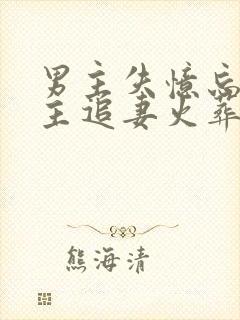 男主失憶忘
主追妻火葬
熊海清